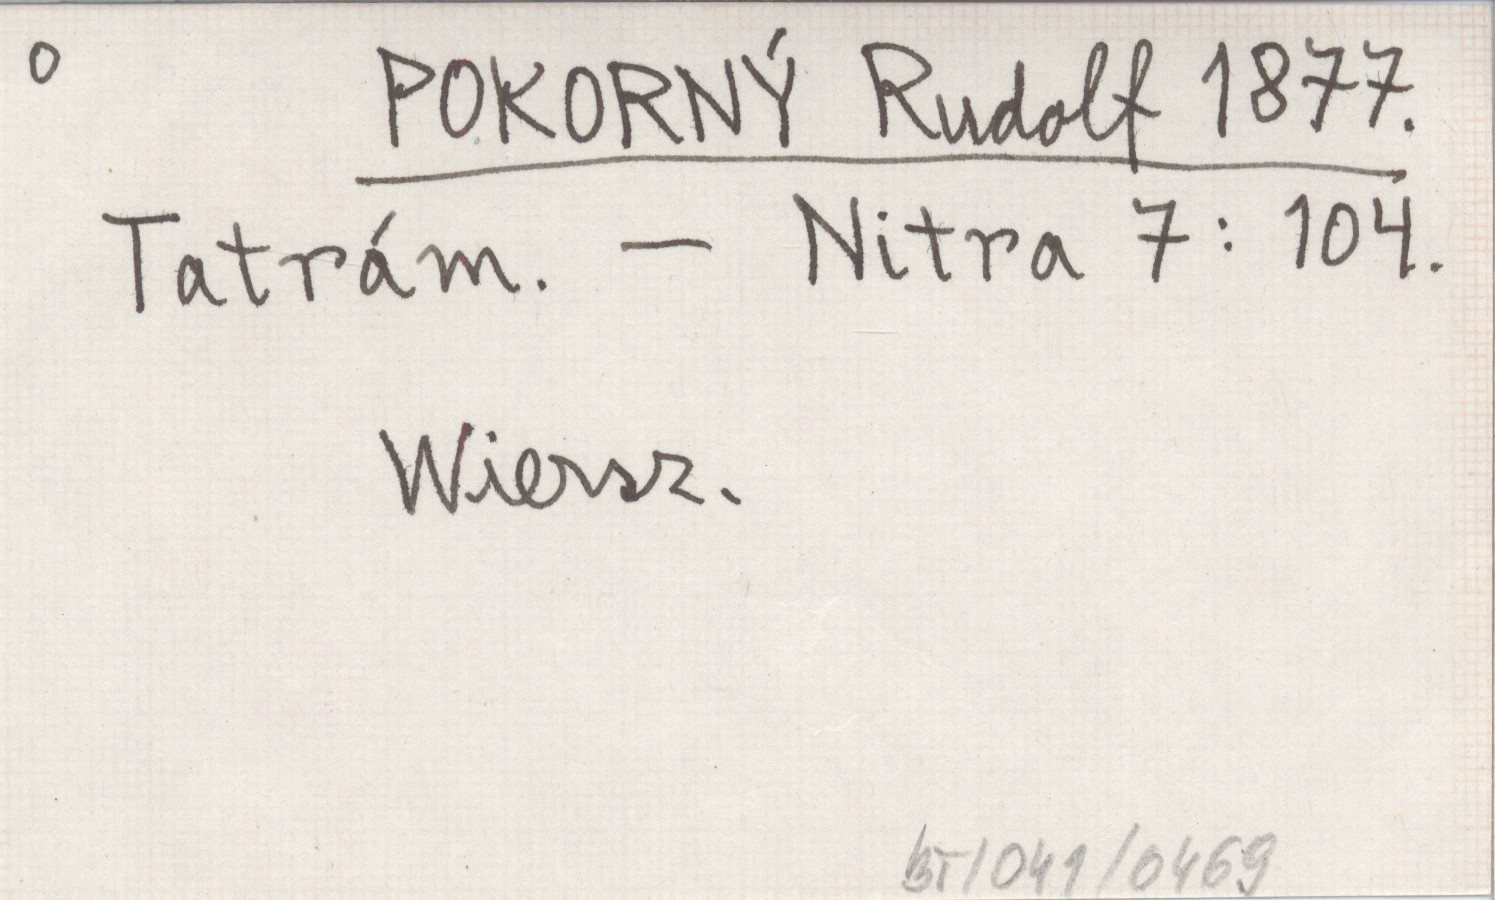 o POKORNÝ Rudolf 1877.
Tatrám. — Nitra 7: 104.
Wiersz.
bT/041/0469